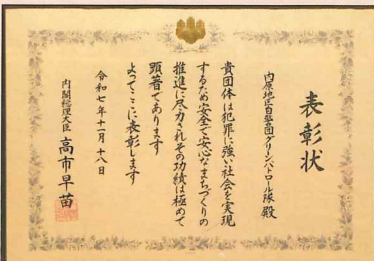 表彰状
内原地区自警団グリーンパトロール隊 殿
貴団体は犯罪に強い社会を実現
するため安全で安心なまちづくりの
推進に尽力されその功績は極めて
顕著であります
よってここに表彰します
令和七年十一月十八日
内閣総理大臣 高市早苗